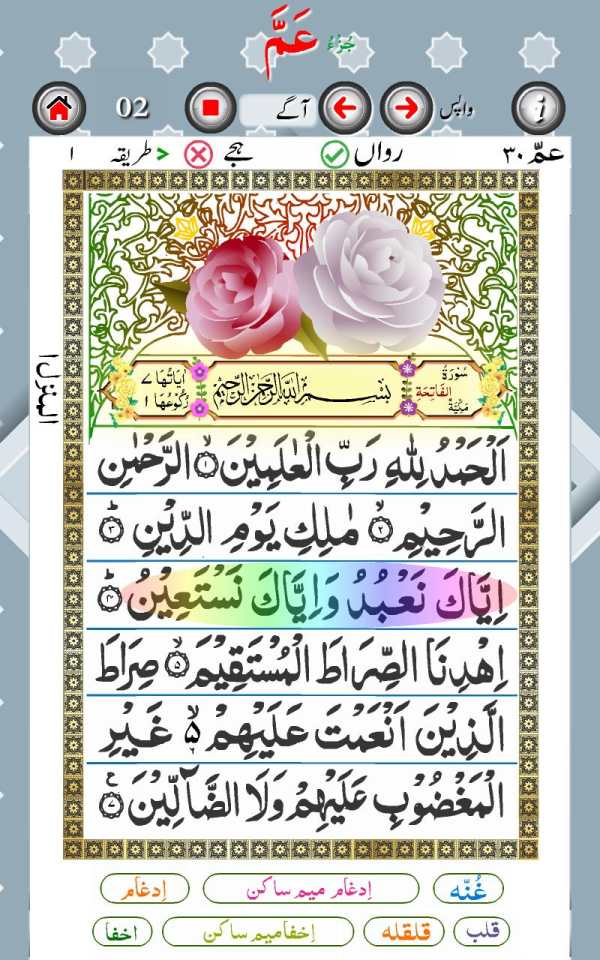 جُزْءُ عَمَّ
02 آگے واپس i
عمّ ۳۰ رواں ہجے طریقہ > ۱
المنزل ۱
سُوْرَةُ الْفَاتِحَة مَكِّيَّةٌ
بِسْمِ اللّٰهِ الرَّحْمٰنِ الرَّحِيْمِ
اٰيَاتُهَا ٧ رُكُوْعُهَا ١
اَلْحَمْدُ لِلّٰهِ رَبِّ الْعٰلَمِيْنَ ۙ﴿۱﴾ الرَّحْمٰنِ
الرَّحِيْمِ ۙ﴿۲﴾ مٰلِكِ يَوْمِ الدِّيْنِ ؕ﴿۳﴾
اِيَّاكَ نَعْبُدُ وَاِيَّاكَ نَسْتَعِيْنُ ؕ﴿۴﴾
اِهْدِنَا الصِّرَاطَ الْمُسْتَقِيْمَ ۙ﴿۵﴾ صِرَاطَ
الَّذِيْنَ اَنْعَمْتَ عَلَيْهِمْ ۙ۵ غَيْرِ
الْمَغْضُوْبِ عَلَيْهِمْ وَلَا الضَّآلِّيْنَ ﴿۷﴾
غُنّه اِدغام میم ساکن اِدغام
قلب قلقله اِخفا میم ساکن اخفا